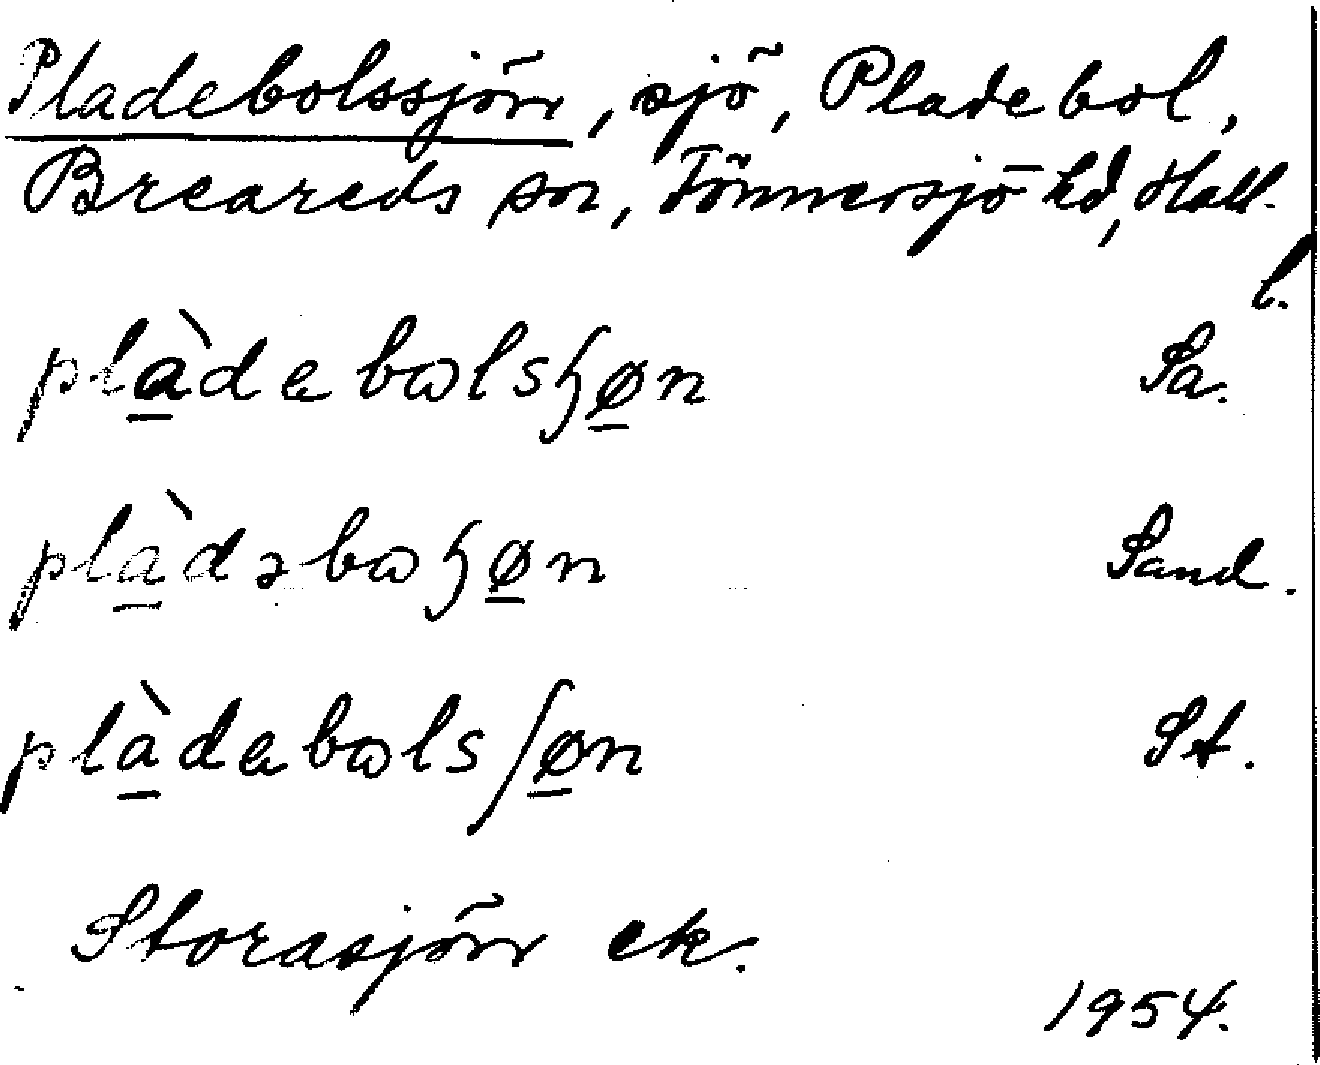 Pladebolssjön, sjö, Pladebol,
Breareds sn, Tönnersjö hd, Hall.
l.
plàdebωlsɧøn Sa.
plàdəbωɧøn Sand.
plàdebωlsʃøn St.
Storasjön ek.
1954.